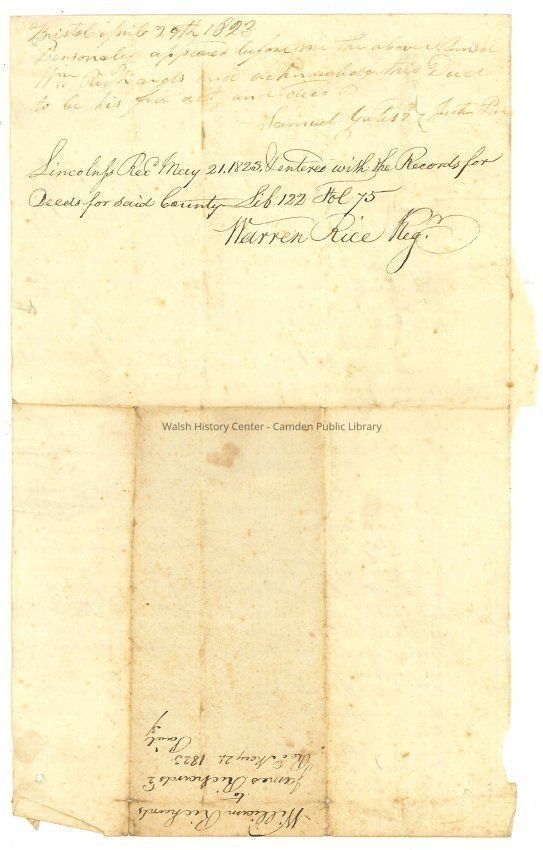 Bristol April 29th 1823
Personaly appeared before me the above Named
Wm. Richards and acknowledge this Deed
to be his free act and deed
Samuel Yates Just Peace
Lincoln ss Recd May 21. 1823, & entered with the Records for
Deeds for said County Lib 122 Fol 75
Warren Rice Regr.
Walsh History Center - Camden Public Library
William Richards
to
James Richards 2
Recd May 21 1823